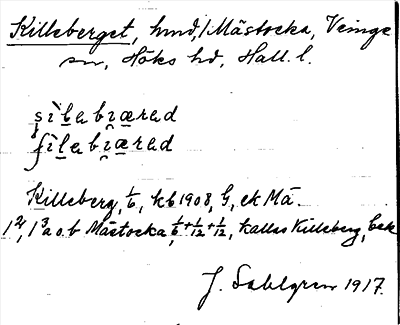 Killeberget, hmd, / Mästocka, Veinge
sn, Höks hd, Hall. l.
Killeberg, 1/6, kb 1908, G, ek Mä.
1², 1³ a o. b Mästocka, 1/6 + 1/12 + 1/12, kallas Killeberg,
J. Sahlgren 1917.